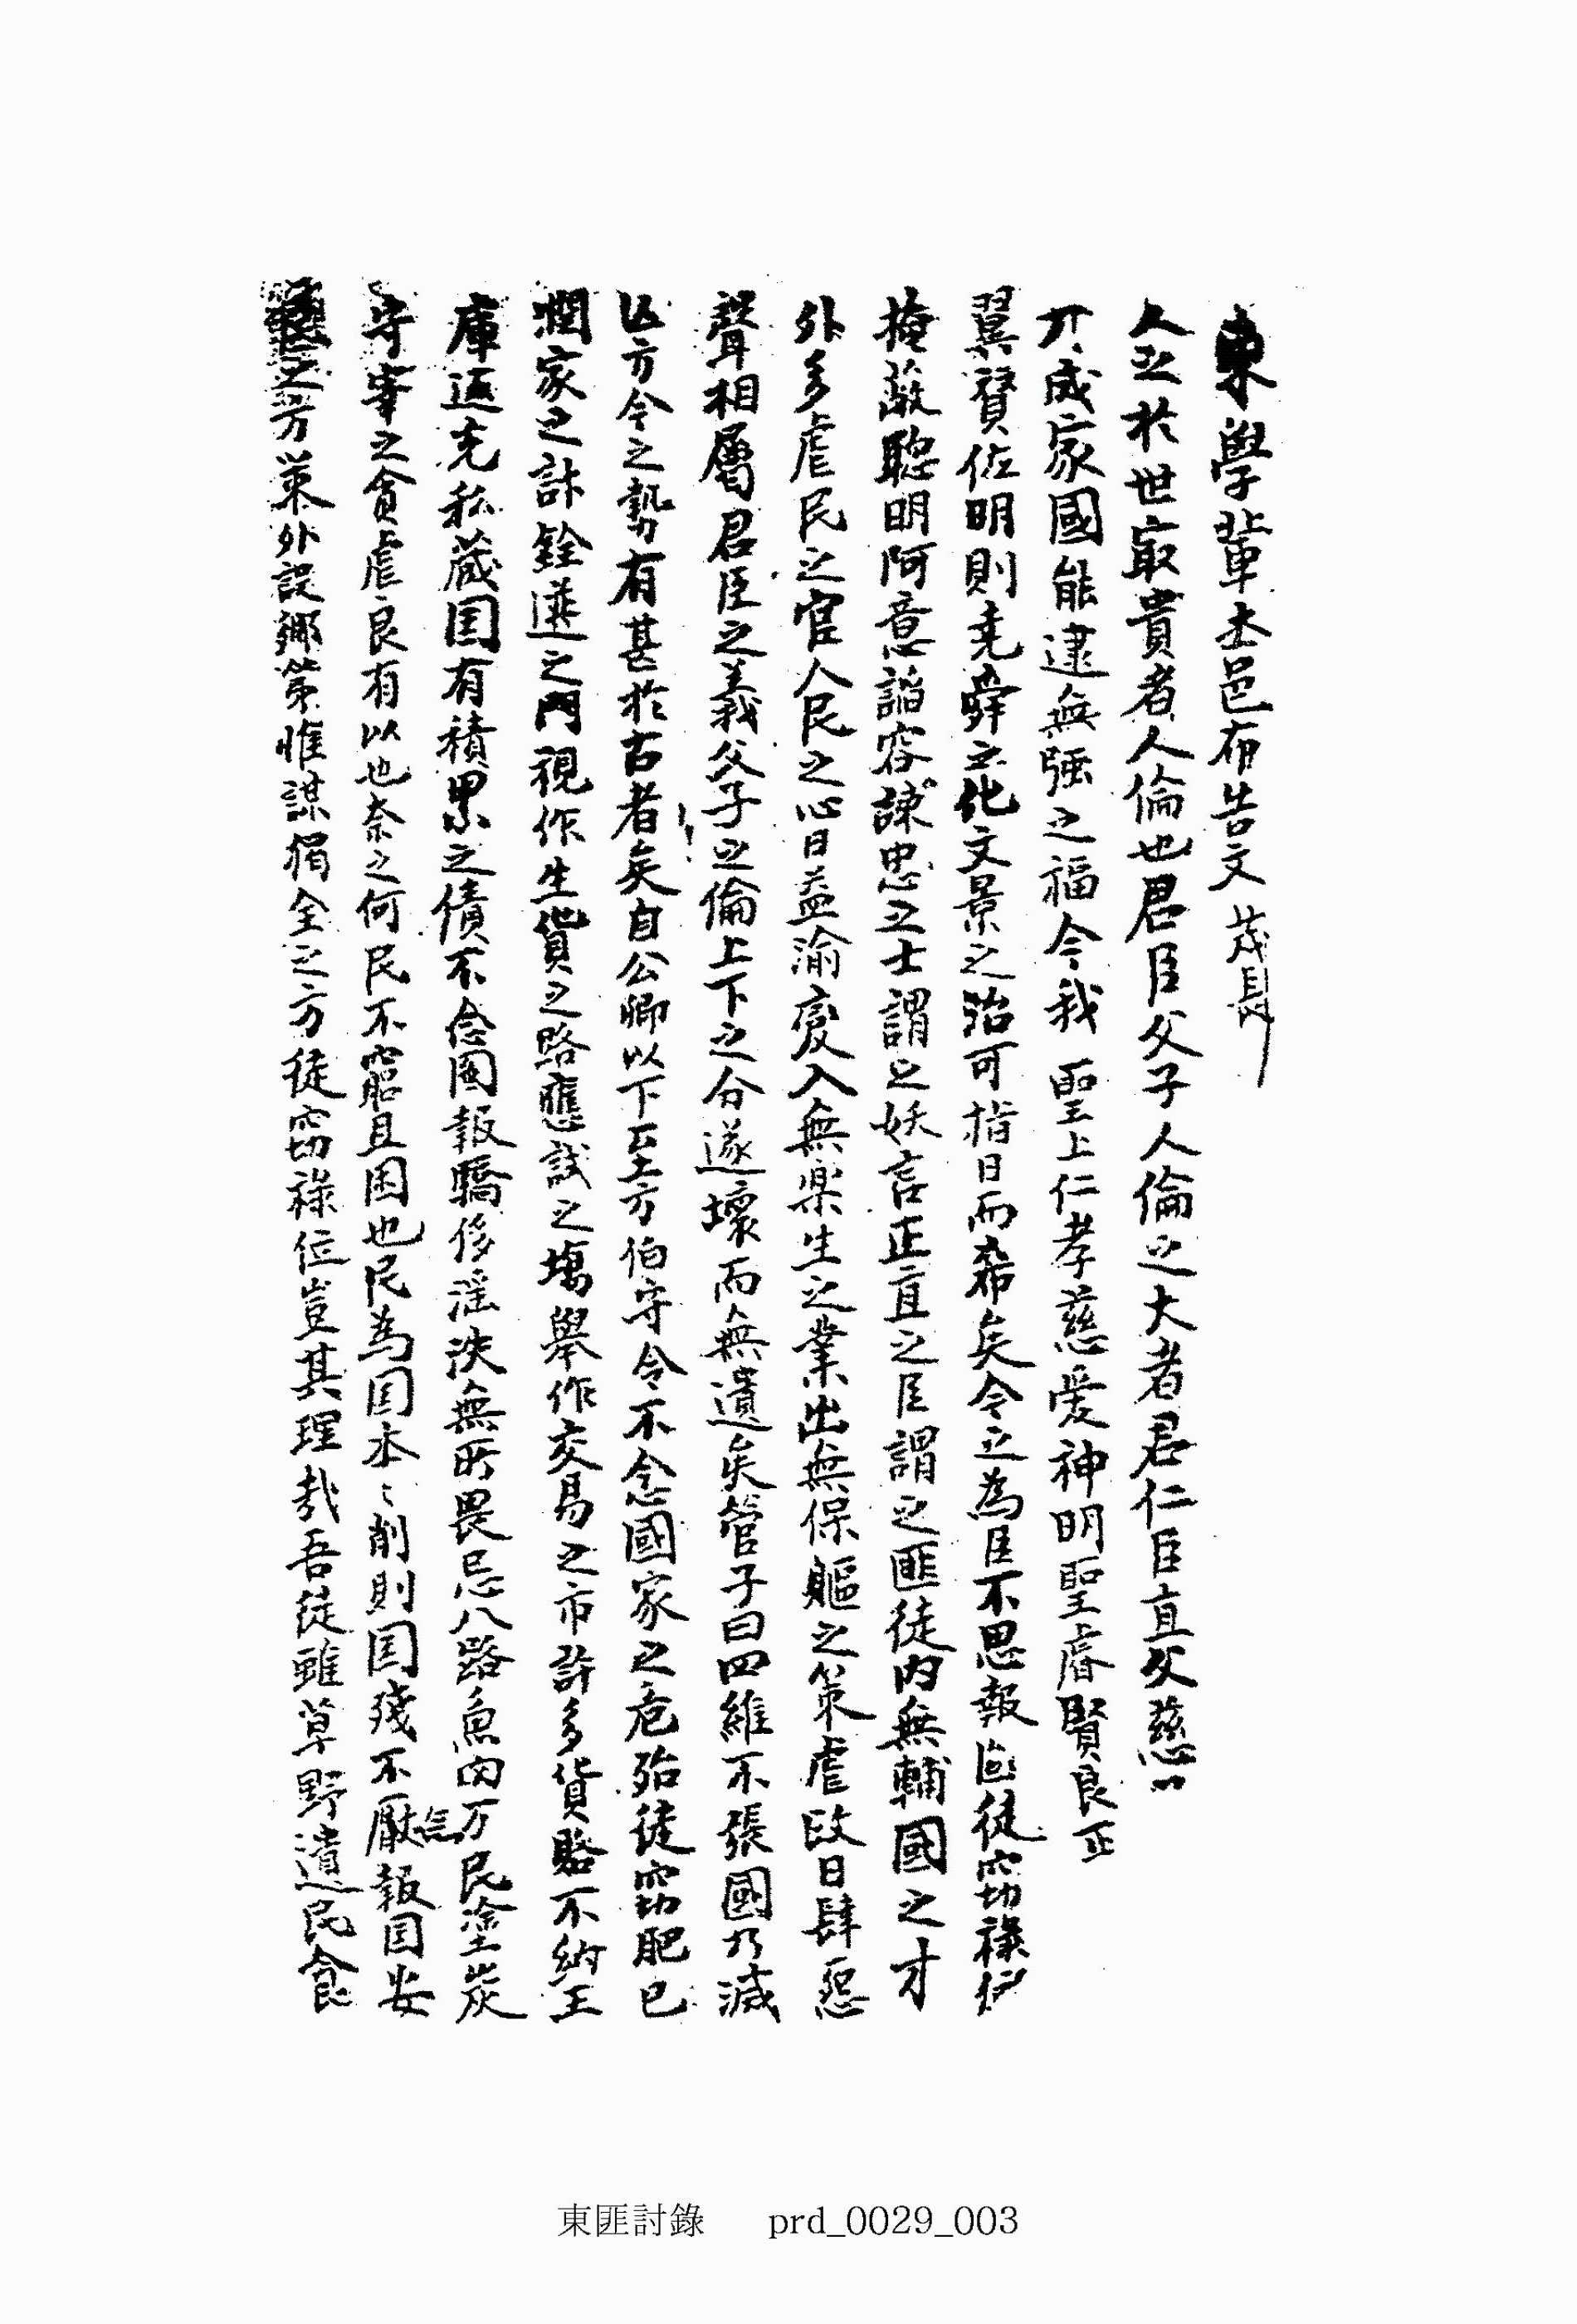 東學輩本邑布告文 茂長
人之於世最貴者人倫也君臣父子人倫之大者君仁臣直父慈〃
丌成家國能逮無强之福今我 聖上仁孝慈爱神明聖睿賢良正
翼賛佐明則堯舜之化文景之治可指日而希矣今之為臣不思報囯徒窃祿位
掩蔽聰明阿意謟容諫忠之士謂之妖言正直之臣謂之匪徒内無輔國之才
外多虐民之官人民之心日益渝变入無楽生之業出無保軀之策虐政日肆惡
聲相屬君臣之義父子之倫上下之分遂壞而無遺矣管子曰四維不張國乃滅
亾方今之勢有甚於古者矣自公卿以下至方伯守令不念國家之危殆徒窃肥己
潤家之計銓選之門視作生貨之路應試之塲舉作交易之市許多貨賂不納王
庫返充私蔵囯有積累之債不念圖報驕侈滛泆無所畏忌八路魚肉万民塗炭
守宰之貪虐良有以也奈之何民不窮且困也民為囯本〻削則囯殘不念厭報囯安
之方策外設鄉第惟謀獨全之方徒窃祿位豈其理哉吾徒雖草野遺民食
東匪討錄 prd_0029_003